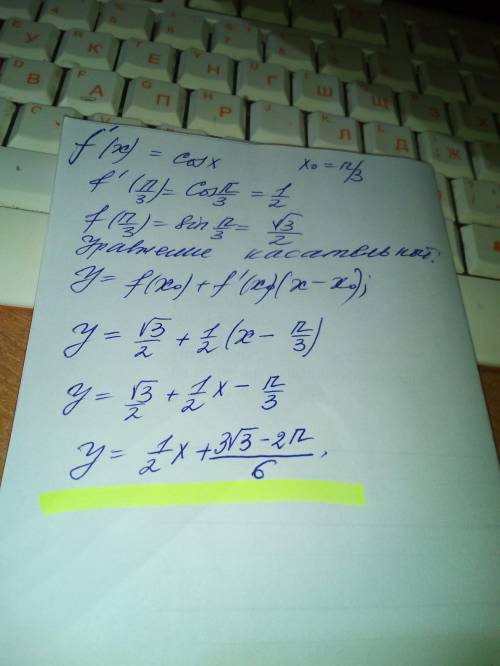 Е
У
К
Е
Н
Г
Ш
Щ
З
В
А
П
Р
О
Л
Д
Ж
f'(x) = cosx x₀ = π/3
f'(π/3) = cos π/3 = 1/2
f(π/3) = sin π/3 = √3/2
Уравнение касательной:
y = f(x₀) + f'(x₀)(x - x₀);
y = √3/2 + 1/2 (x - π/3)
y = √3/2 + 1/2 x - π/3
y = 1/2 x + (3√3 - 2π)/6.